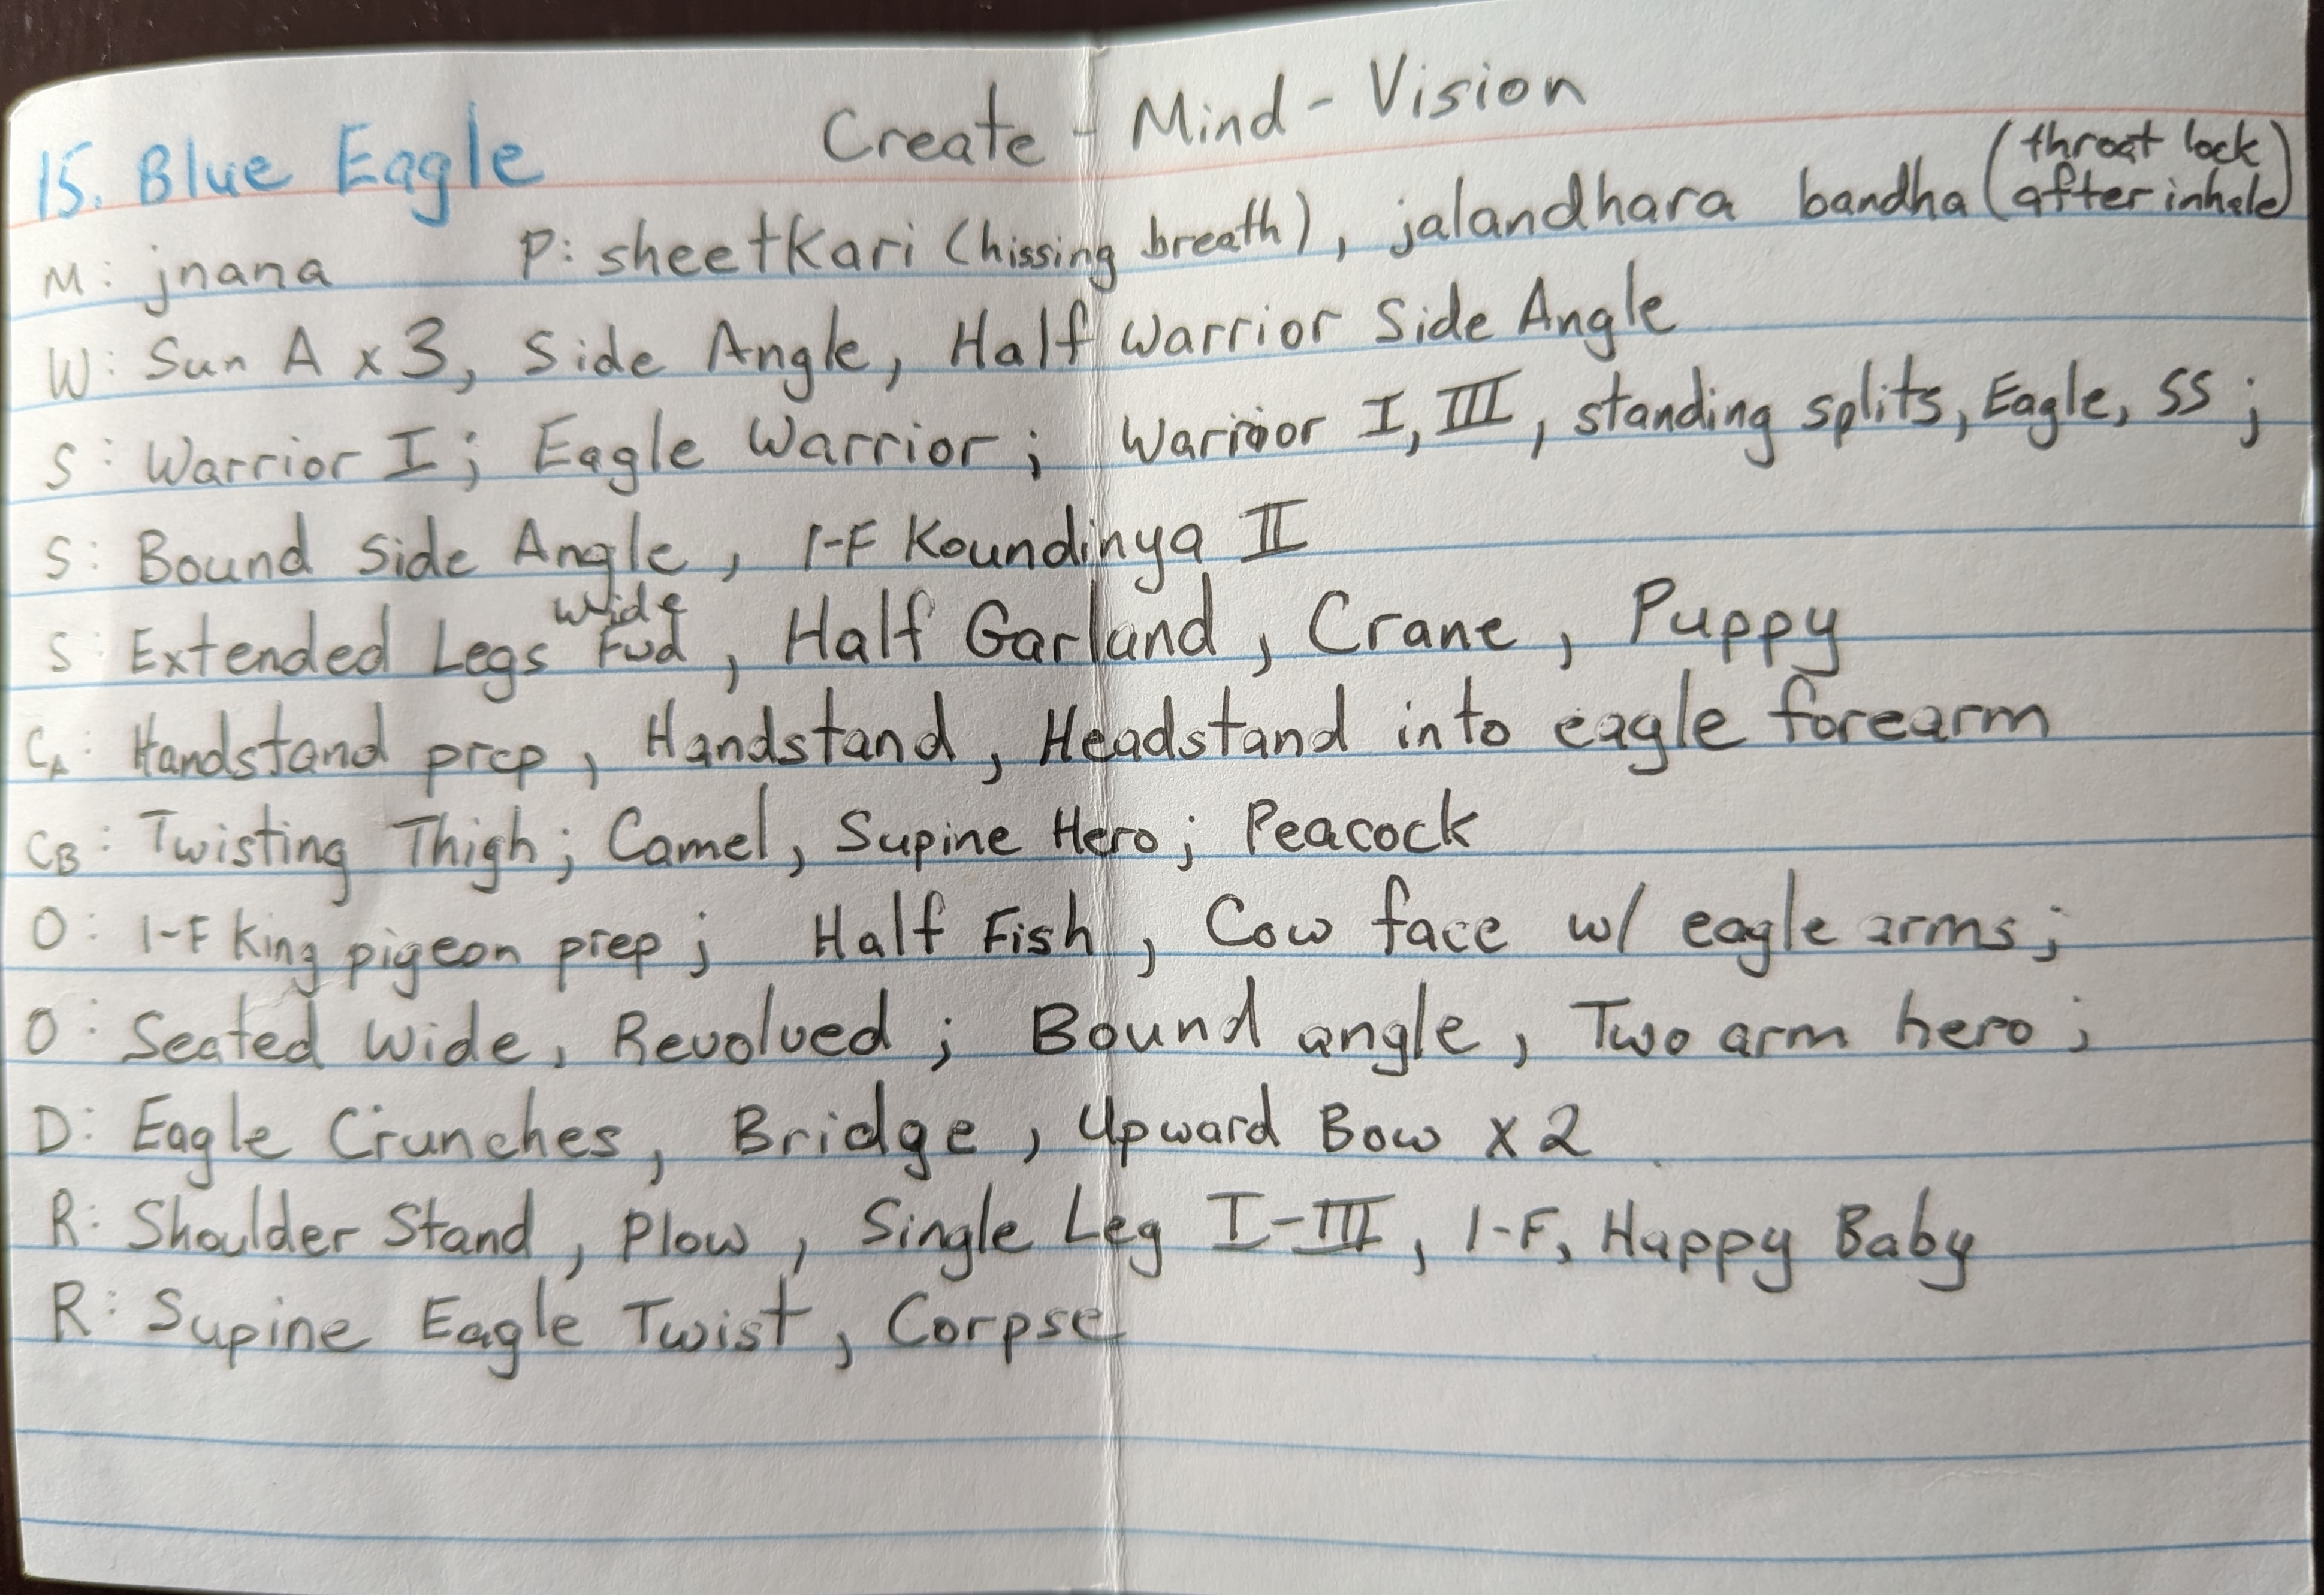 15. Blue Eagle Create - Mind - Vision
M: jnana P: sheetkari (hissing breath), jalandhara bandha (throat lock after inhale)
W: Sun A x 3, Side Angle, Half Warrior Side Angle
S: Warrior I; Eagle Warrior; Warrior I, III, standing splits, Eagle, SS;
S: Bound Side Angle, 1-F Koundinya II
S: Extended Legs Wide Fwd, Half Garland, Crane, Puppy
CA: Handstand prep, Handstand, Headstand into eagle forearm
CB: Twisting Thigh; Camel, Supine Hero; Peacock
O: 1-F King pigeon prep; Half Fish, Cow face w/ eagle arms;
O: Seated Wide, Revolved; Bound angle, Two arm hero;
D: Eagle Crunches, Bridge, Upward Bow x2
R: Shoulder Stand, Plow, Single Leg I-III, 1-F, Happy Baby
R: Supine Eagle Twist, Corpse